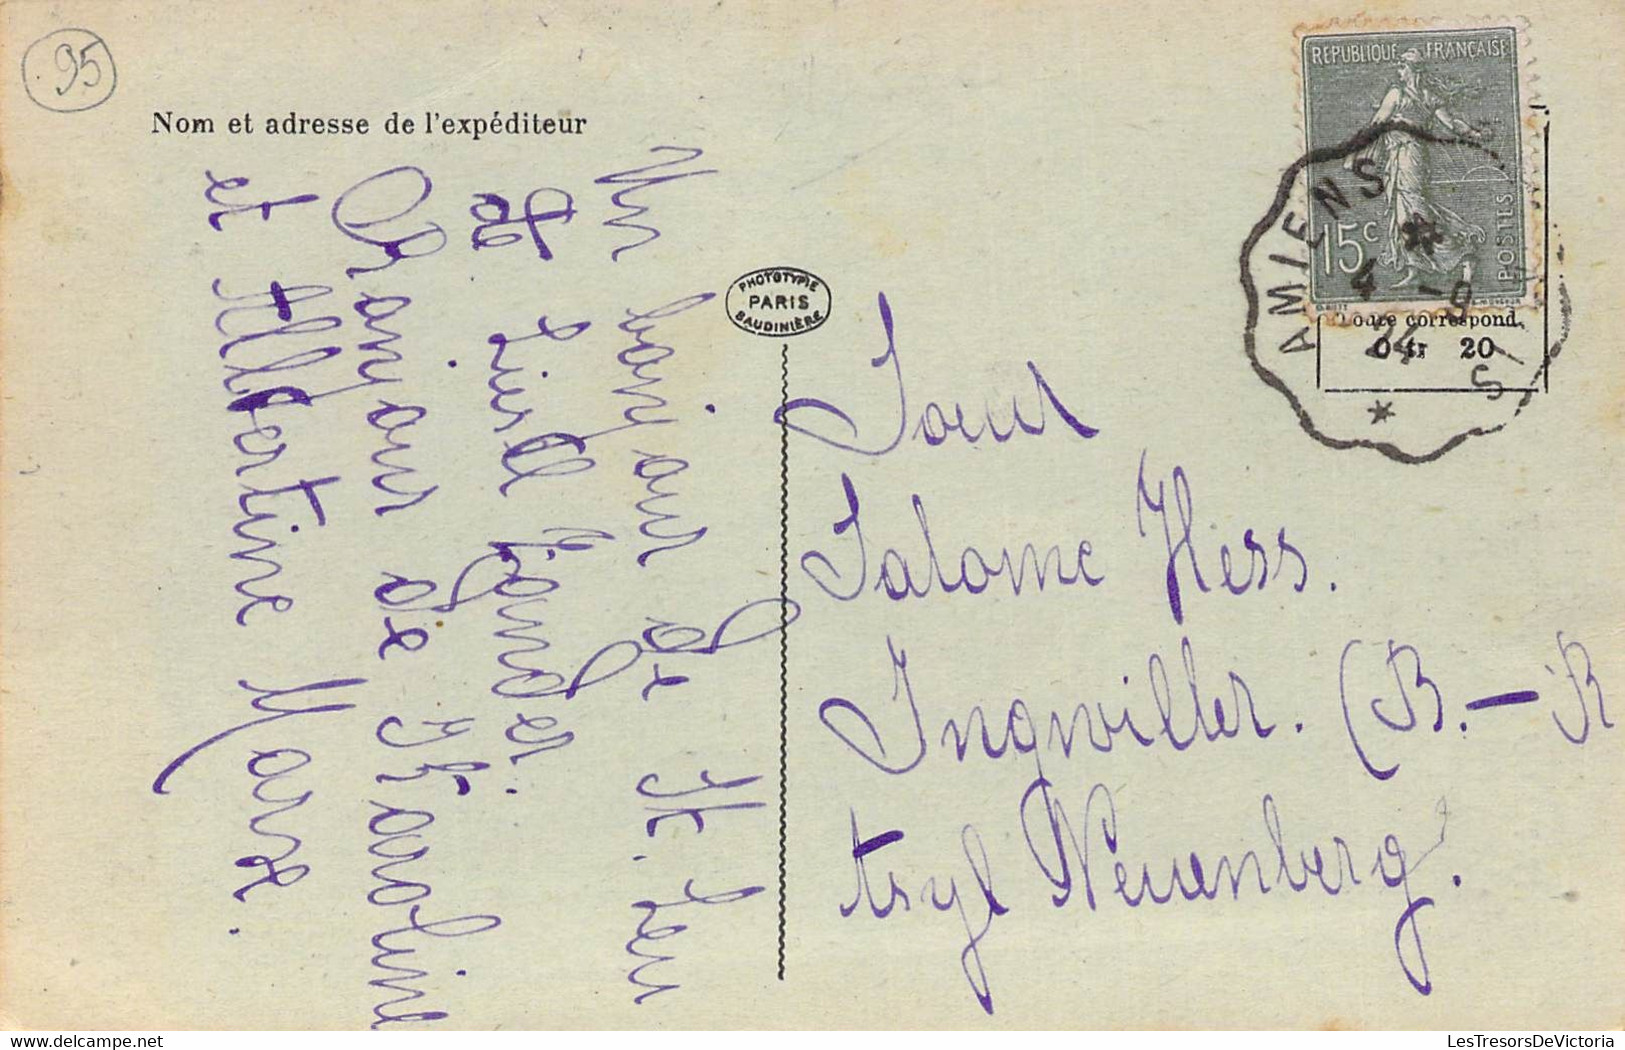 95
Nom et adresse de l'expéditeur
Un bonjour de H. Leu
de Liesel Zigader.
Obonjour de Karoline
et Albertine Marx.
PHOTOTYPIE
PARIS
BAUDINIÈRE
REPUBLIQUE FRANÇAISE
15c
POSTES
AMIENS
4 -9
24
Toute correspond.
0 fr 20
Soeur
Salome Hess.
Ingwiller. (B.-R
Asyl Neuenberg.
LesTresorsDeVictoria